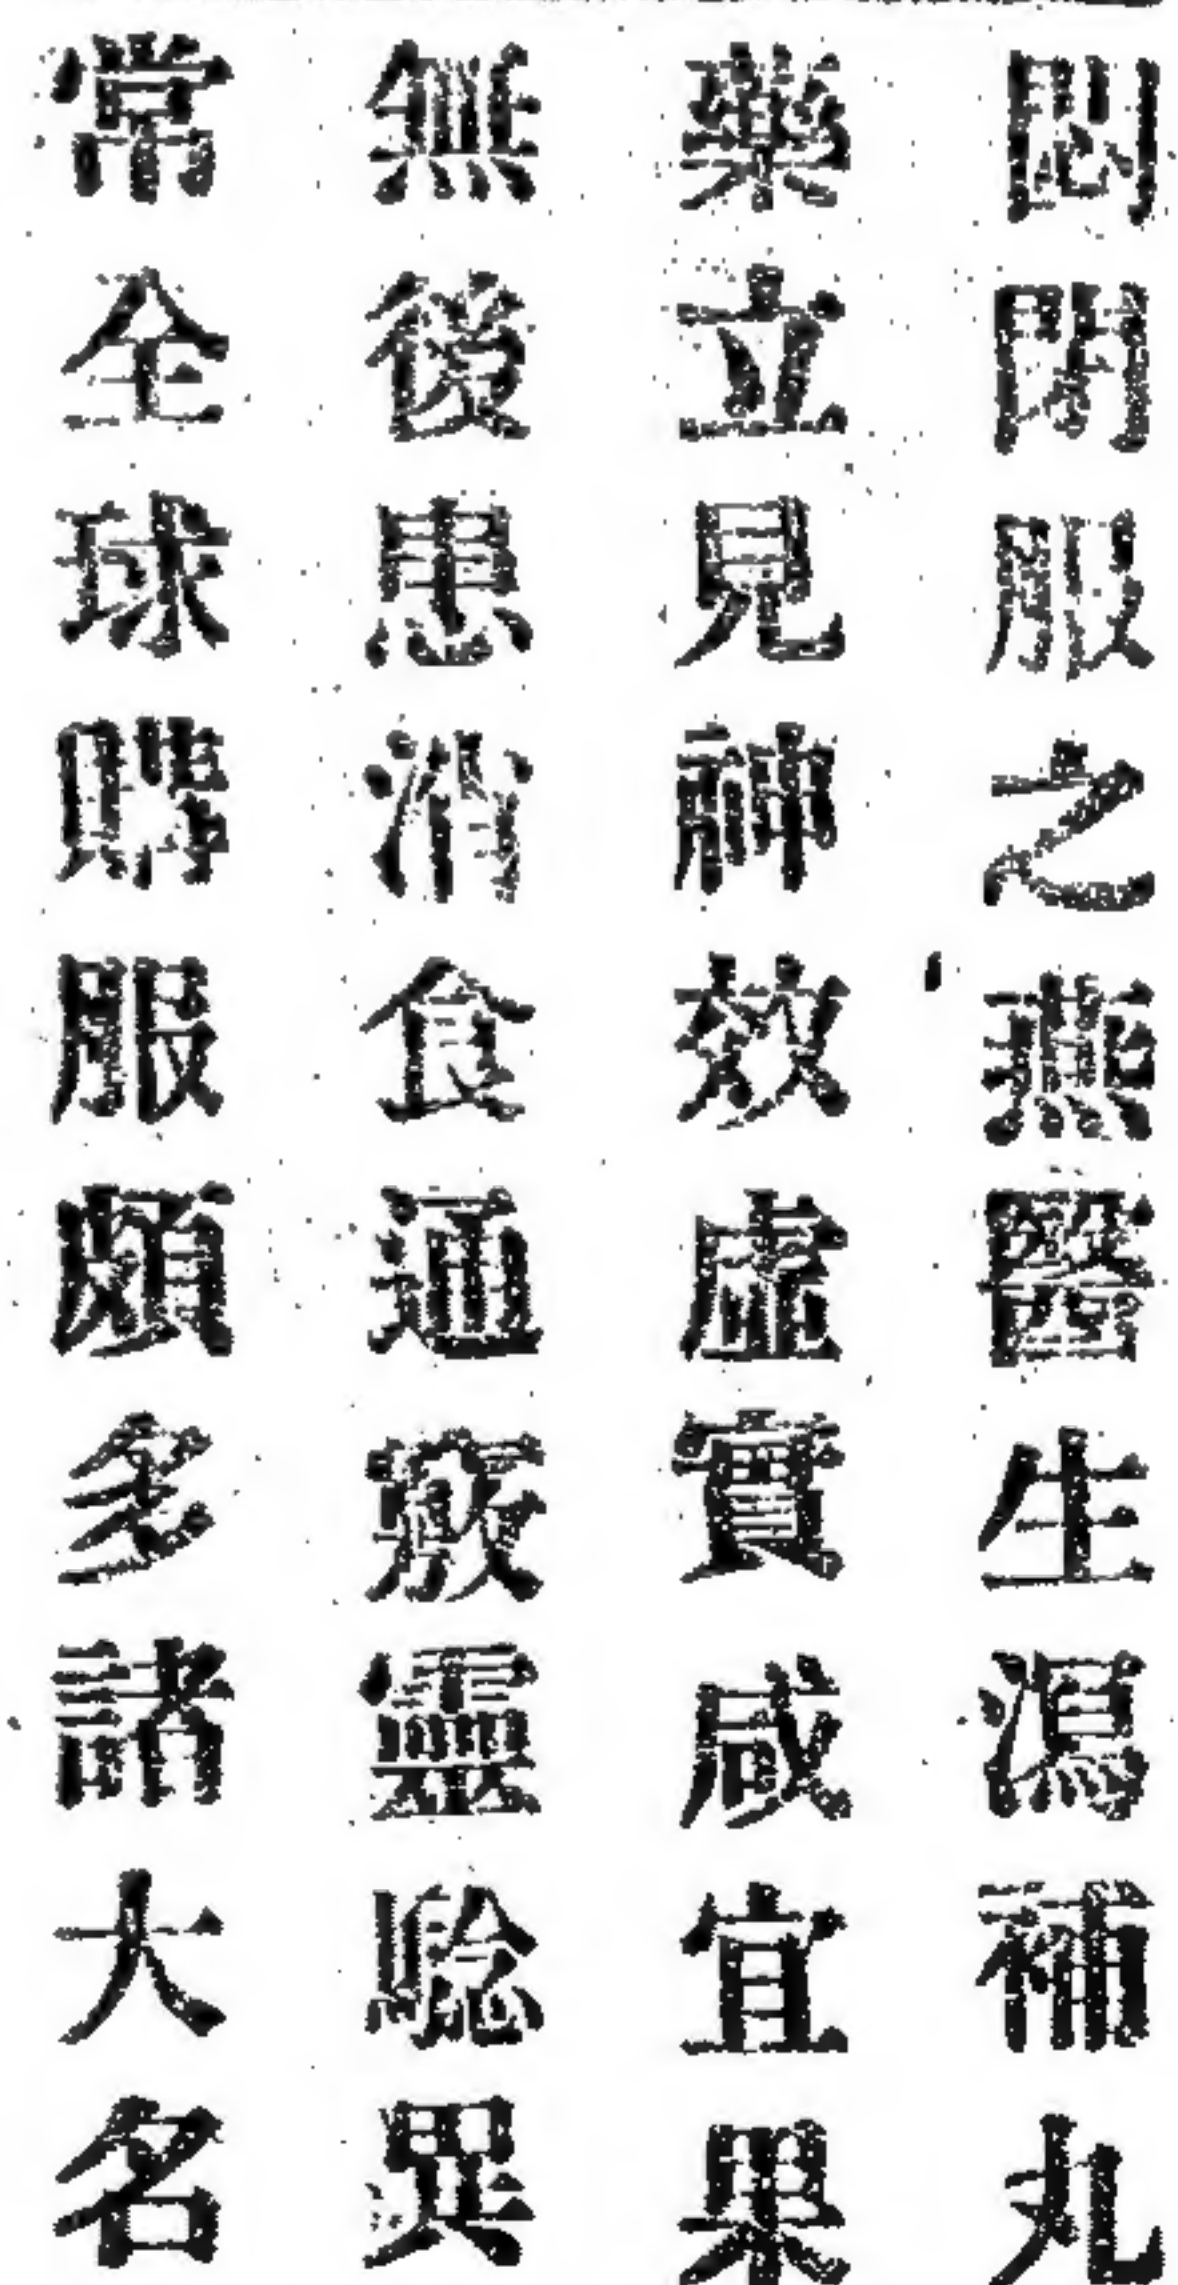 悶閉服之燕醫生瀉補丸
藥立見神效虛實咸宜果
無後患消食通竅靈騐異
常全球購服頗多諸大名